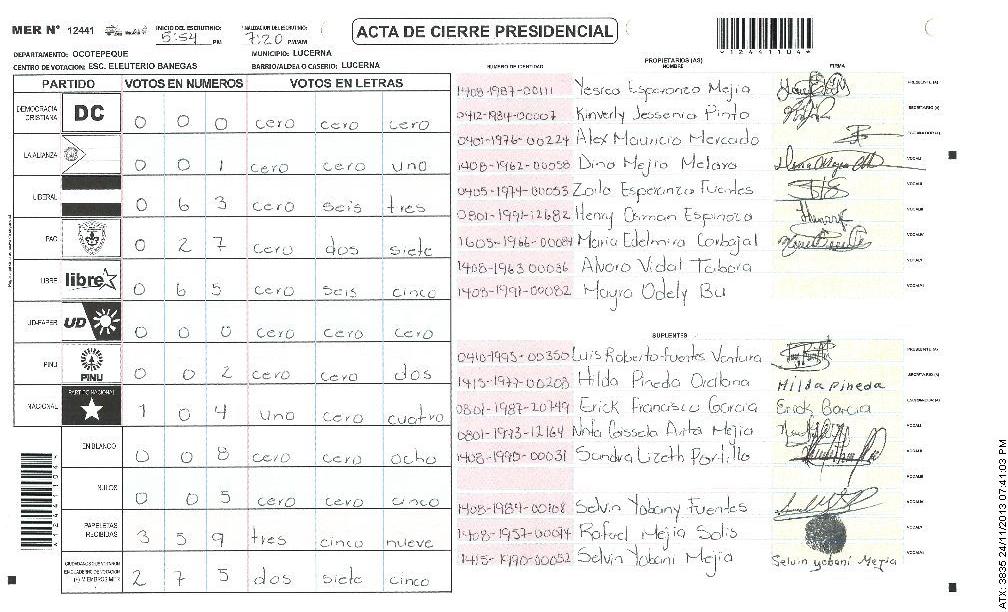 MER Nº 12441 INICIO DEL ESCRUTINIO: 5:54 PM FINALIZACION DEL ESCRUTINIO: 7:20 PM/AM
ACTA DE CIERRE PRESIDENCIAL
12441104
DEPARTAMENTO: OCOTEPEQUE MUNICIPIO: LUCERNA
CENTRO DE VOTACION: ESC. ELEUTERIO BANEGAS BARRIO/ALDEA O CASERIO: LUCERNA
PARTIDO VOTOS EN NUMEROS VOTOS EN LETRAS
DEMOCRACIA CRISTIANA DC 0 0 0 cero cero cero
LA ALIANZA 0 0 1 cero cero uno
LIBERAL 0 6 3 cero seis tres
PAC 0 2 7 cero dos siete
LIBRE libre 0 6 5 cero seis cinco
UD-FAPER UD 0 0 0 cero cero cero
PINU PINU 0 0 2 cero cero dos
NACIONAL PARTIDO NACIONAL 1 0 4 uno cero cuatro
EN BLANCO 0 0 8 cero cero ocho
NULOS 0 0 5 cero cero cinco
PAPELETAS RECIBIDAS 3 5 9 tres cinco nueve
CIUDADANOS QUE VOTARON EN CUADERNO DE VOTACION (+) MIEMBROS MER 2 7 5 dos siete cinco
PROPIETARIOS (AS)
NUMERO DE IDENTIDAD NOMBRE FIRMA
1408-1987-00111 Yesica Esperanza Mejia PRESIDENTE (A)
0412-1984-00007 Kinverly Jessenia Pinto SECRETARIO (A)
0401-1976-00224 Alex Mauricio Mercado
1408-1962-00058 Dina Mejia VOCAL I
0405-1974-00053 Zoila Esperanza Fuentes VOCAL II
0801-1991-12682 Henry Osman Espinoza VOCAL III
1605-1966-00084 Maria Edelmira Carbajal VOCAL IV
1408-1963-00036 Alvaro Vidal Tabora VOCAL V
1408-1991-00082 Mayra Odely Bu VOCAL VI
SUPLENTES
0410-1995-00350 Luis Roberto Fuentes Ventura PRESIDENTE (A)
1415-1977-00208 Hilda Pineda Orellana Hilda Pineda SECRETARIO (A)
0801-1987-20749 Erick Francisco Garcia Erick Garcia
0801-1993-12164 Mejia VOCAL I
1408-1990-00031 Sandra Lizeth Portillo VOCAL II
VOCAL III
1408-1984-00108 Selvin Yobany Fuentes VOCAL IV
1408-1957-00094 Rafael Mejia Solis VOCAL V
1415-1990-00052 Selvin Yobani Mejia Selvin yobani Mejia VOCAL VI
ATX: 3835 24/11/2013 07:41:03 PM